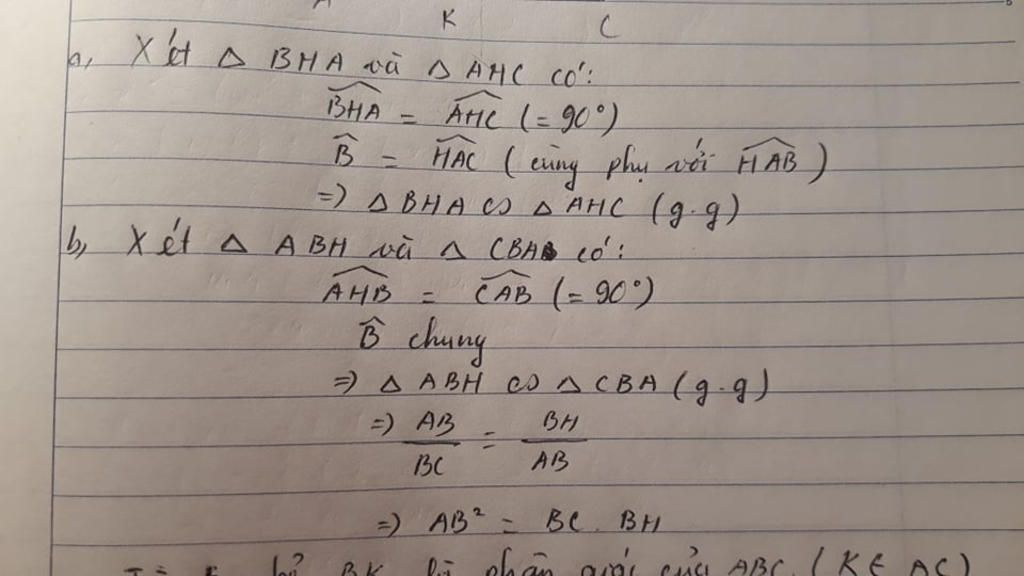 K C
a, Xét △ BHA và △ AHC có:
$\widehat{BHA}$ = $\widehat{AHC}$ (= 90°)
$\widehat{B}$ = $\widehat{HAC}$ (cùng phụ với $\widehat{HAB}$)
=> △ BHA ∽ △ AHC (g.g)
b, Xét △ ABH và △ CBA có:
$\widehat{AHB}$ = $\widehat{CAB}$ (= 90°)
$\widehat{B}$ chung
=> △ ABH ∽ △ CBA (g.g)
=> $\frac{AB}{BC}$ = $\frac{BH}{AB}$
=> AB² = BC . BH
BK là phân giác của ABC (K ∈ AC)